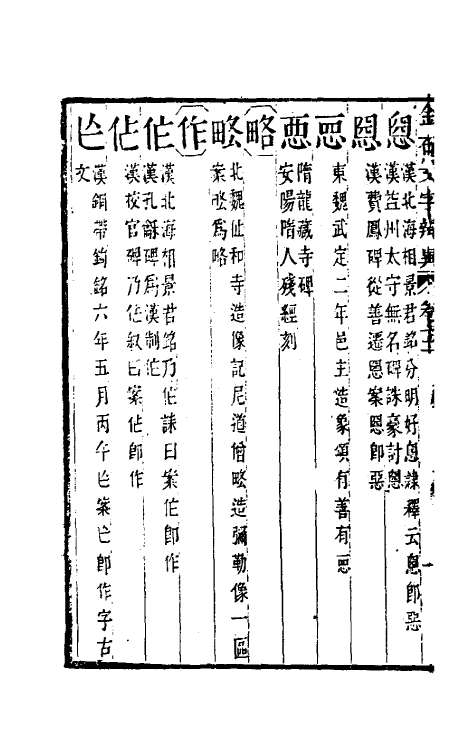 金石文字辨異
漢北海相景君銘分明好㤙隷釋云㤙即惡
漢益州太守無名碑誅豪討㤙
漢費鳳碑從善遷恩案恩即惡
𢙣
東魏武定二年邑主造象頌有善有𢙣
悪
隋龍藏寺碑
安陽隋人殘經刻
略
䂮
北魏仙和寺造像記尼道僧䂮造彌勒像一區
案䂮爲略
作
㐰
漢北海相景君銘乃㐰誄曰案㐰即作
漢孔龢碑爲漢制㐰
佔
漢校官碑乃佔叙曰案佔即作
亾
漢銅帶鉤銘六年五月丙午亾案亾即作字古
文